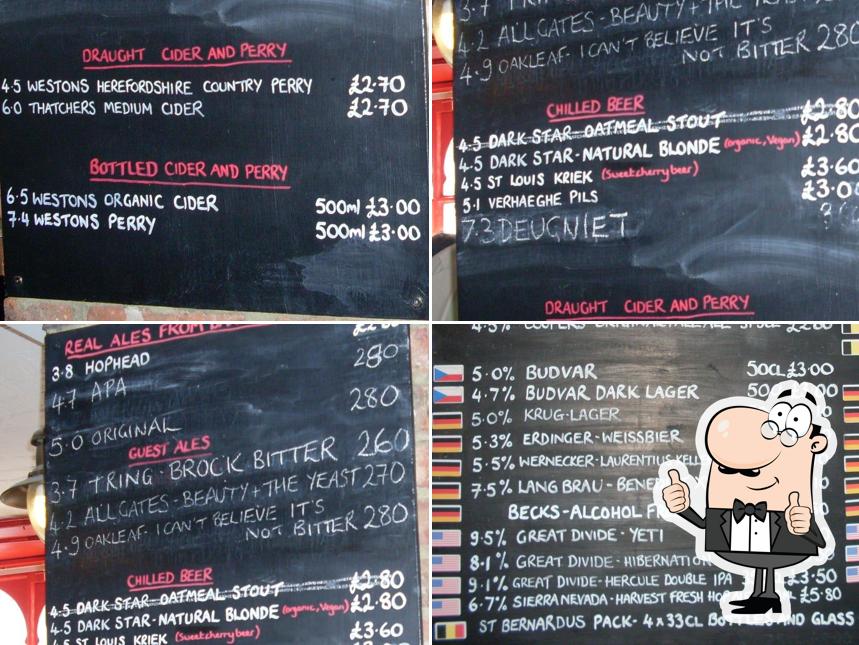 DRAUGHT CIDER AND PERRY
4.5 WESTONS HEREFORDSHIRE COUNTRY PERRY £2.70
6.0 THATCHERS MEDIUM CIDER £2.70
BOTTLED CIDER AND PERRY
6.5 WESTONS ORGANIC CIDER 500ml £3.00
7.4 WESTONS PERRY 500ml £3.00
3.7 TRING
4.2 ALLGATES - BEAUTY + THE YEAST
4.9 OAKLEAF - I CAN'T BELIEVE IT'S
NOT BITTER 280
CHILLED BEER
4.5 DARK STAR OATMEAL STOUT £2.80
4.5 DARK STAR - NATURAL BLONDE (organic, Vegan) £2.80
4.5 ST LOUIS KRIEK (Sweet cherry beer) £3.60
5.1 VERHAEGHE PILS £3.00
7.3 DEUGNIET
DRAUGHT CIDER AND PERRY
REAL ALES FROM
3.8 HOPHEAD 280
4.7 APA 280
5.0 ORIGINAL
GUEST ALES
3.7 TRING - BROCK BITTER 260
4.2 ALLGATES - BEAUTY + THE YEAST 270
4.9 OAKLEAF - I CAN'T BELIEVE IT'S
NOT BITTER 280
CHILLED BEER
4.5 DARK STAR OATMEAL STOUT £2.80
4.5 DARK STAR - NATURAL BLONDE (organic, Vegan) £2.80
4.5 ST LOUIS KRIEK (Sweet cherry beer) £3.60
5.0% BUDVAR 50CL £3.00
4.7% BUDVAR DARK LAGER
5.0% KRUG - LAGER
5.3% ERDINGER - WEISSBIER
5.5% WERNECKER - LAURENTIUS
7.5% LANG BRAU
BECKS - ALCOHOL
9.5% GREAT DIVIDE - YETI
8.1% GREAT DIVIDE - HIBERNATION
9.1% GREAT DIVIDE - HERCULE DOUBLE IPA £3.50
6.7% SIERRA NEVADA - HARVEST FRESH £5.80
ST BERNARDUS PACK - 4 x 33CL BOTTLES AND GLASS